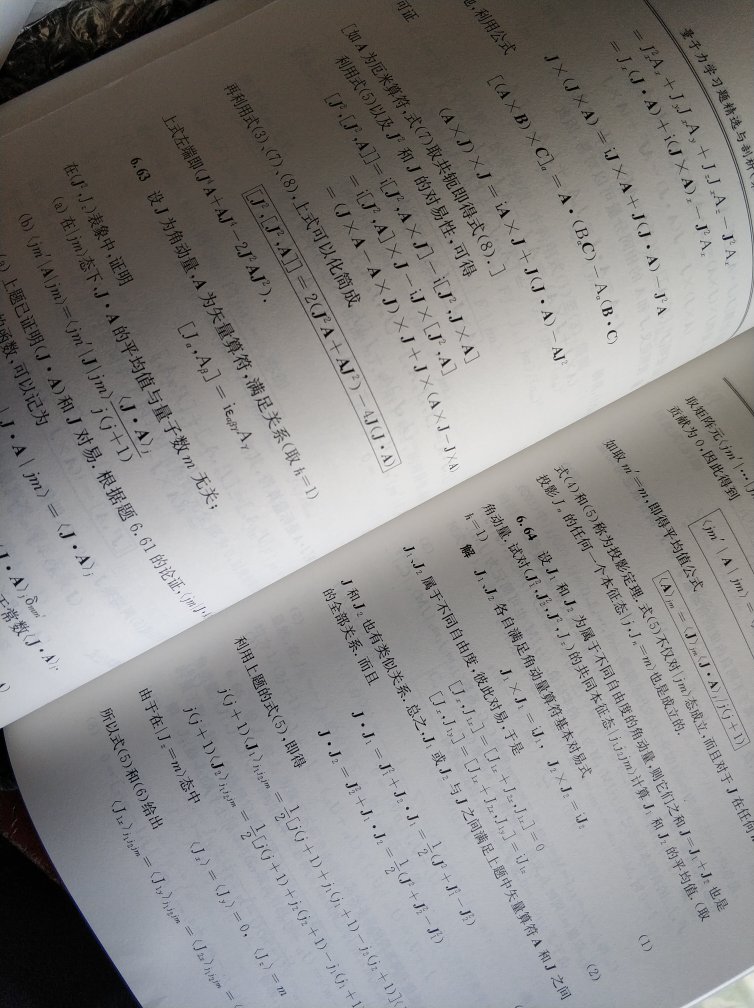 量子力学习题精选与剖析
= J²A_z + J_yJ_zA_y + J_zJ_zA_z − J²A_z
= J_z(J·A) + i(J×A)_z − J²A_z
J×(J×A) = iJ×A + J(J·A) − J²A
利用公式
[(A×B)×C]_α = A·(B_αC) − A_α(B·C)
可证
(A×J)×J = iA×J + J(J·A) − AJ²
[如A为厄米算符,式(7)取共轭即得式(8).]
利用式(5)以及J²和J的对易性,可得
[J²,[J²,A]] = i[J²,A×J] − i[J²,J×A]
= i[J²,A]×J − iJ×[J²,A]
= (J×A − A×J)×J + J×(A×J − J×A)
再利用式(3)、(7)、(8),上式可以化简成
[J²,[J²,A]] = 2(J²A + AJ²) − 4J(J·A)
上式左端即(J⁴A + AJ⁴ − 2J²AJ²).
6.63 设J为角动量,A为矢量算符,满足关系(取ħ=1)
[J_α,A_β] = iε_αβγA_γ
在(J²,J_z)表象中,证明
(a) 在|jm⟩态下,J·A的平均值与量子数m无关;
(b) ⟨jm′|A|jm⟩ = ⟨jm′|J|jm⟩ ⟨J·A⟩_j / j(j+1)
上题已证明(J·A)和J对易.根据题6.61的论证,
函数,可以记为
|J·A|jm⟩ = ⟨J·A⟩_j
⟨J·A⟩_j δ_mm′
常数⟨J·A⟩_j.
取矩阵元⟨jm′|…|
贡献为0,因此得到
⟨jm′|A|jm⟩
如取m′=m,即得平均值公式
⟨A⟩_jm = ⟨J⟩_jm⟨J·A⟩_j/j(j+1)
式(4)和(5)称为投影定理.式(5)不仅对|jm⟩态成立,而且对于J在任何
投影J_n的任何一个本征态|j,J_n=m⟩也是成立的.
6.64 设J₁和J₂为属于不同自由度的角动量,则它们之和J=J₁+J₂也是
角动量.试对(J₁²,J₂²,J²,J_z)的共同本征态|j₁j₂jm⟩计算J₁和J₂的平均值.(取
ħ=1)
解 J₁、J₂各自满足角动量算符基本对易式
J₁×J₁ = iJ₁, J₂×J₂ = iJ₂ (1)
J₁、J₂属于不同自由度,彼此对易,于是
[J_x,J_1x] = [J_1x + J_2x,J_1x] = 0
[J_x,J_1y] = [J_1x + J_2x,J_1y] = iJ_1z (2)
J和J₂也有类似关系.总之,J₁或J₂与J之间满足上题中矢量算符A和J之间
的全部关系.而且
J·J₁ = J₁² + J₂·J₁ = ½(J² + J₁² − J₂²)
J·J₂ = J₂² + J₁·J₂ = ½(J² + J₂² − J₁²)
利用上题的式(5),即得
j(j+1)⟨J₁⟩_j₁j₂jm = ½[j(j+1) + j₁(j₁+1) − j₂(j₂+1)]
j(j+1)⟨J₂⟩_j₁j₂jm = ½[j(j+1) + j₂(j₂+1) − j₁(j₁+1
由于在|J_z=m⟩态中
⟨J_x⟩ = ⟨J_y⟩ = 0, ⟨J_z⟩ = m
所以式(5)和(6)给出
⟨J_1x⟩_j₁j₂jm = ⟨J_1y⟩_j₁j₂jm = ⟨J_2x⟩_j₁j₂jm =